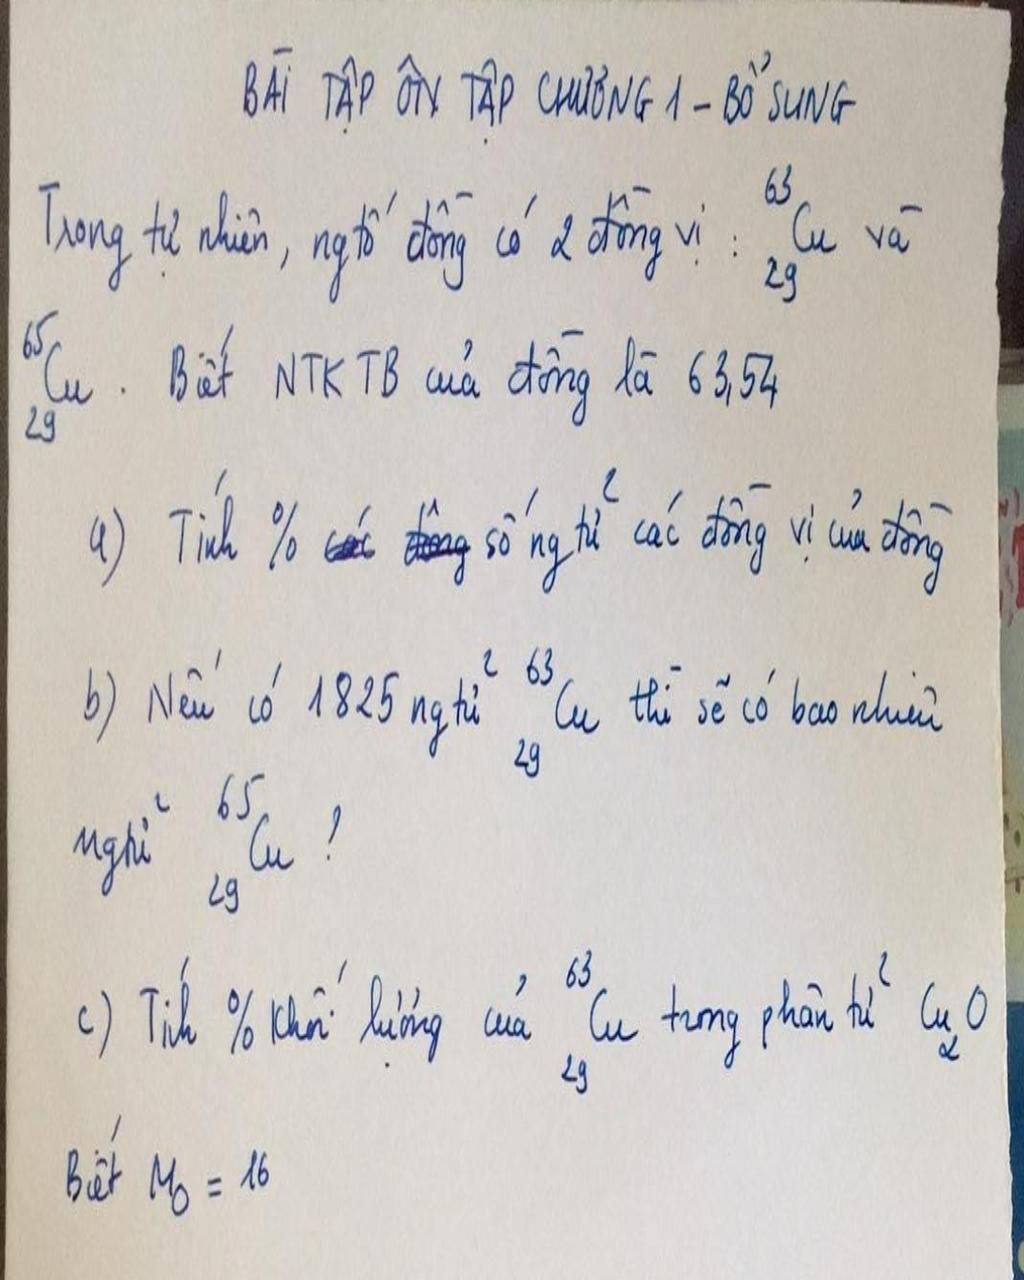 BÀI TẬP ÔN TẬP CHƯƠNG 1 - BỔ SUNG
Trong tự nhiên, ngtố đồng có 2 đồng vị : ⁶³₂₉Cu và
⁶⁵₂₉Cu . Biết NTKTB của đồng là 63,54
a) Tính % số ngtử các đồng vị của đồng
b) Nếu có 1825 ngtử ⁶³₂₉Cu thì sẽ có bao nhiêu
ngtử ⁶⁵₂₉Cu ?
c) Tính % khối lượng của ⁶³₂₉Cu trong phân tử Cu₂O
Biết M₀ = 16